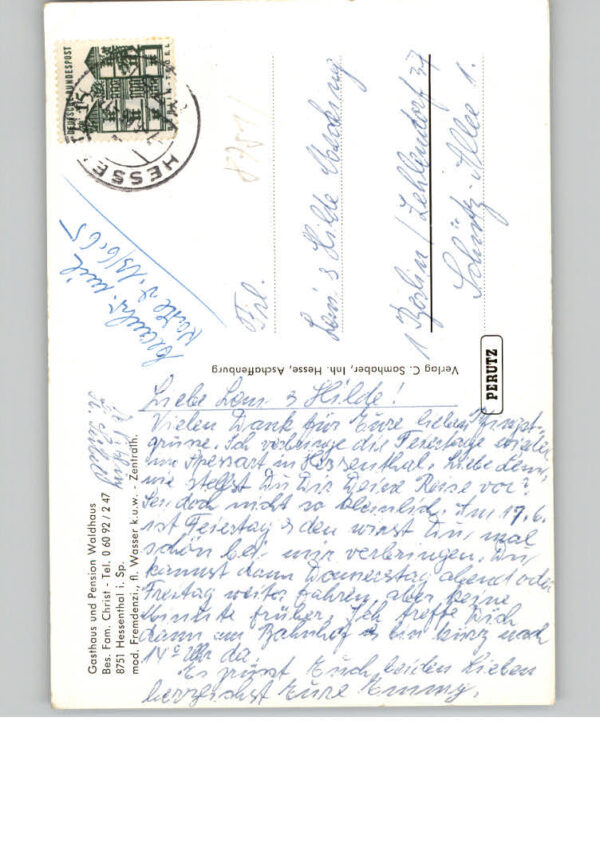 Gasthaus und Pension Waldhaus
Bes. Fam. Christ - Tel. 0 60 92 / 2 47
8751 Hessenthal i. Sp.
mod. Fremdenzi., fl. Wasser k.u.w. - Zentralh.
Liebe Leni & Hilde!
Vielen Dank für Eure lieben Pfingst-
grüsse. Ich verbringe die Feiertage wieder
im Spessart in Hessenthal. Liebe Leni,
wie stellst Du Dir Deine Reise vor?
Sei doch nicht so kleinlich. Am 17.6.
ist Feiertag & den wirst Du mal
schön bei mir verbringen. Du
kannst dann Donnerstag abend oder
Freitag weiter fahren, aber keine
Minute früher. Ich treffe Dich
dann am Bahnhof & bin kurz nach
14 Uhr da.
Es grüsst Euch beiden Lieben
herzlichst Eure Emmy.
Verlag C. Samhaber, Inh. Hesse, Aschaffenburg
PERUTZ
DEUTSCHE BUNDESPOST
HESSE
8751
13/6.65
Frl.
Leni & Hilde
1 Berlin / Zehlendorf 37
Schütz-Allee 1.